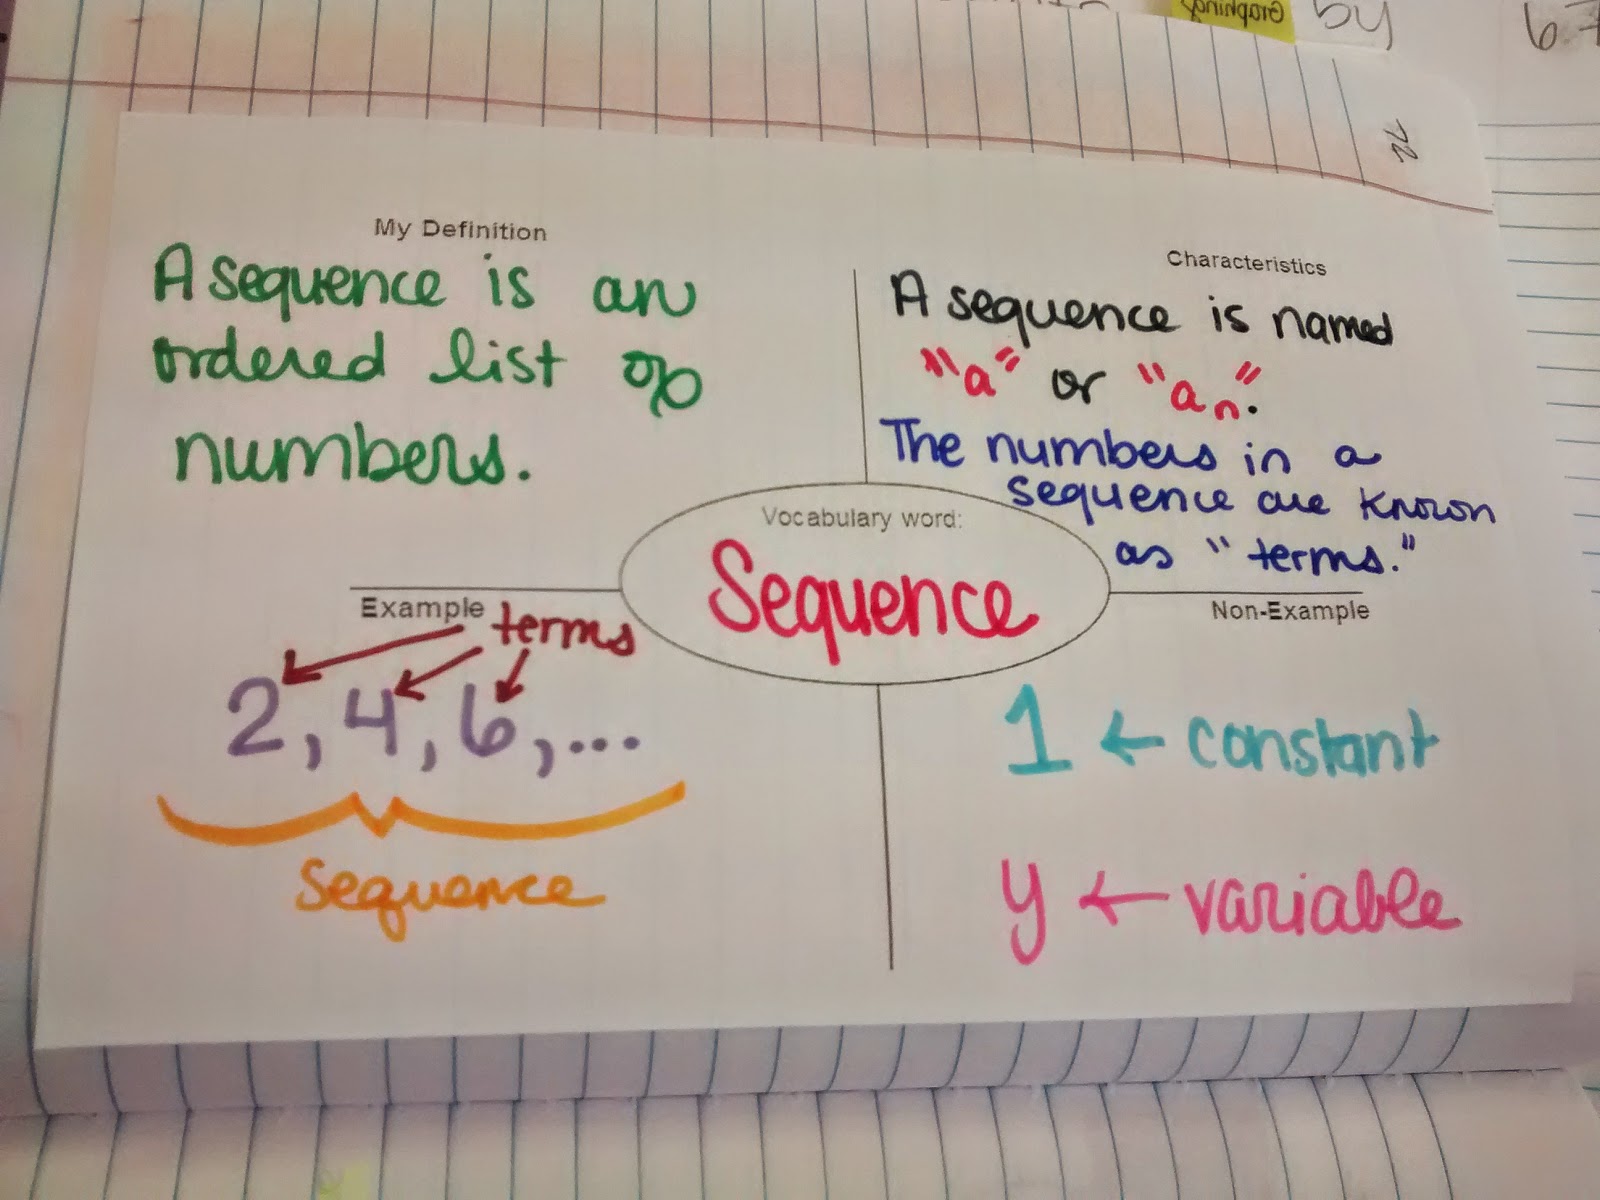 Graphing
by
67
72
My Definition
A sequence is an
ordered list of
numbers.
Characteristics
A sequence is named
"a" or "aₙ".
The numbers in a
sequence are known
as "terms."
Vocabulary word:
Sequence
Example
terms
2, 4, 6, ...
sequence
Non-Example
1 ← constant
y ← variable